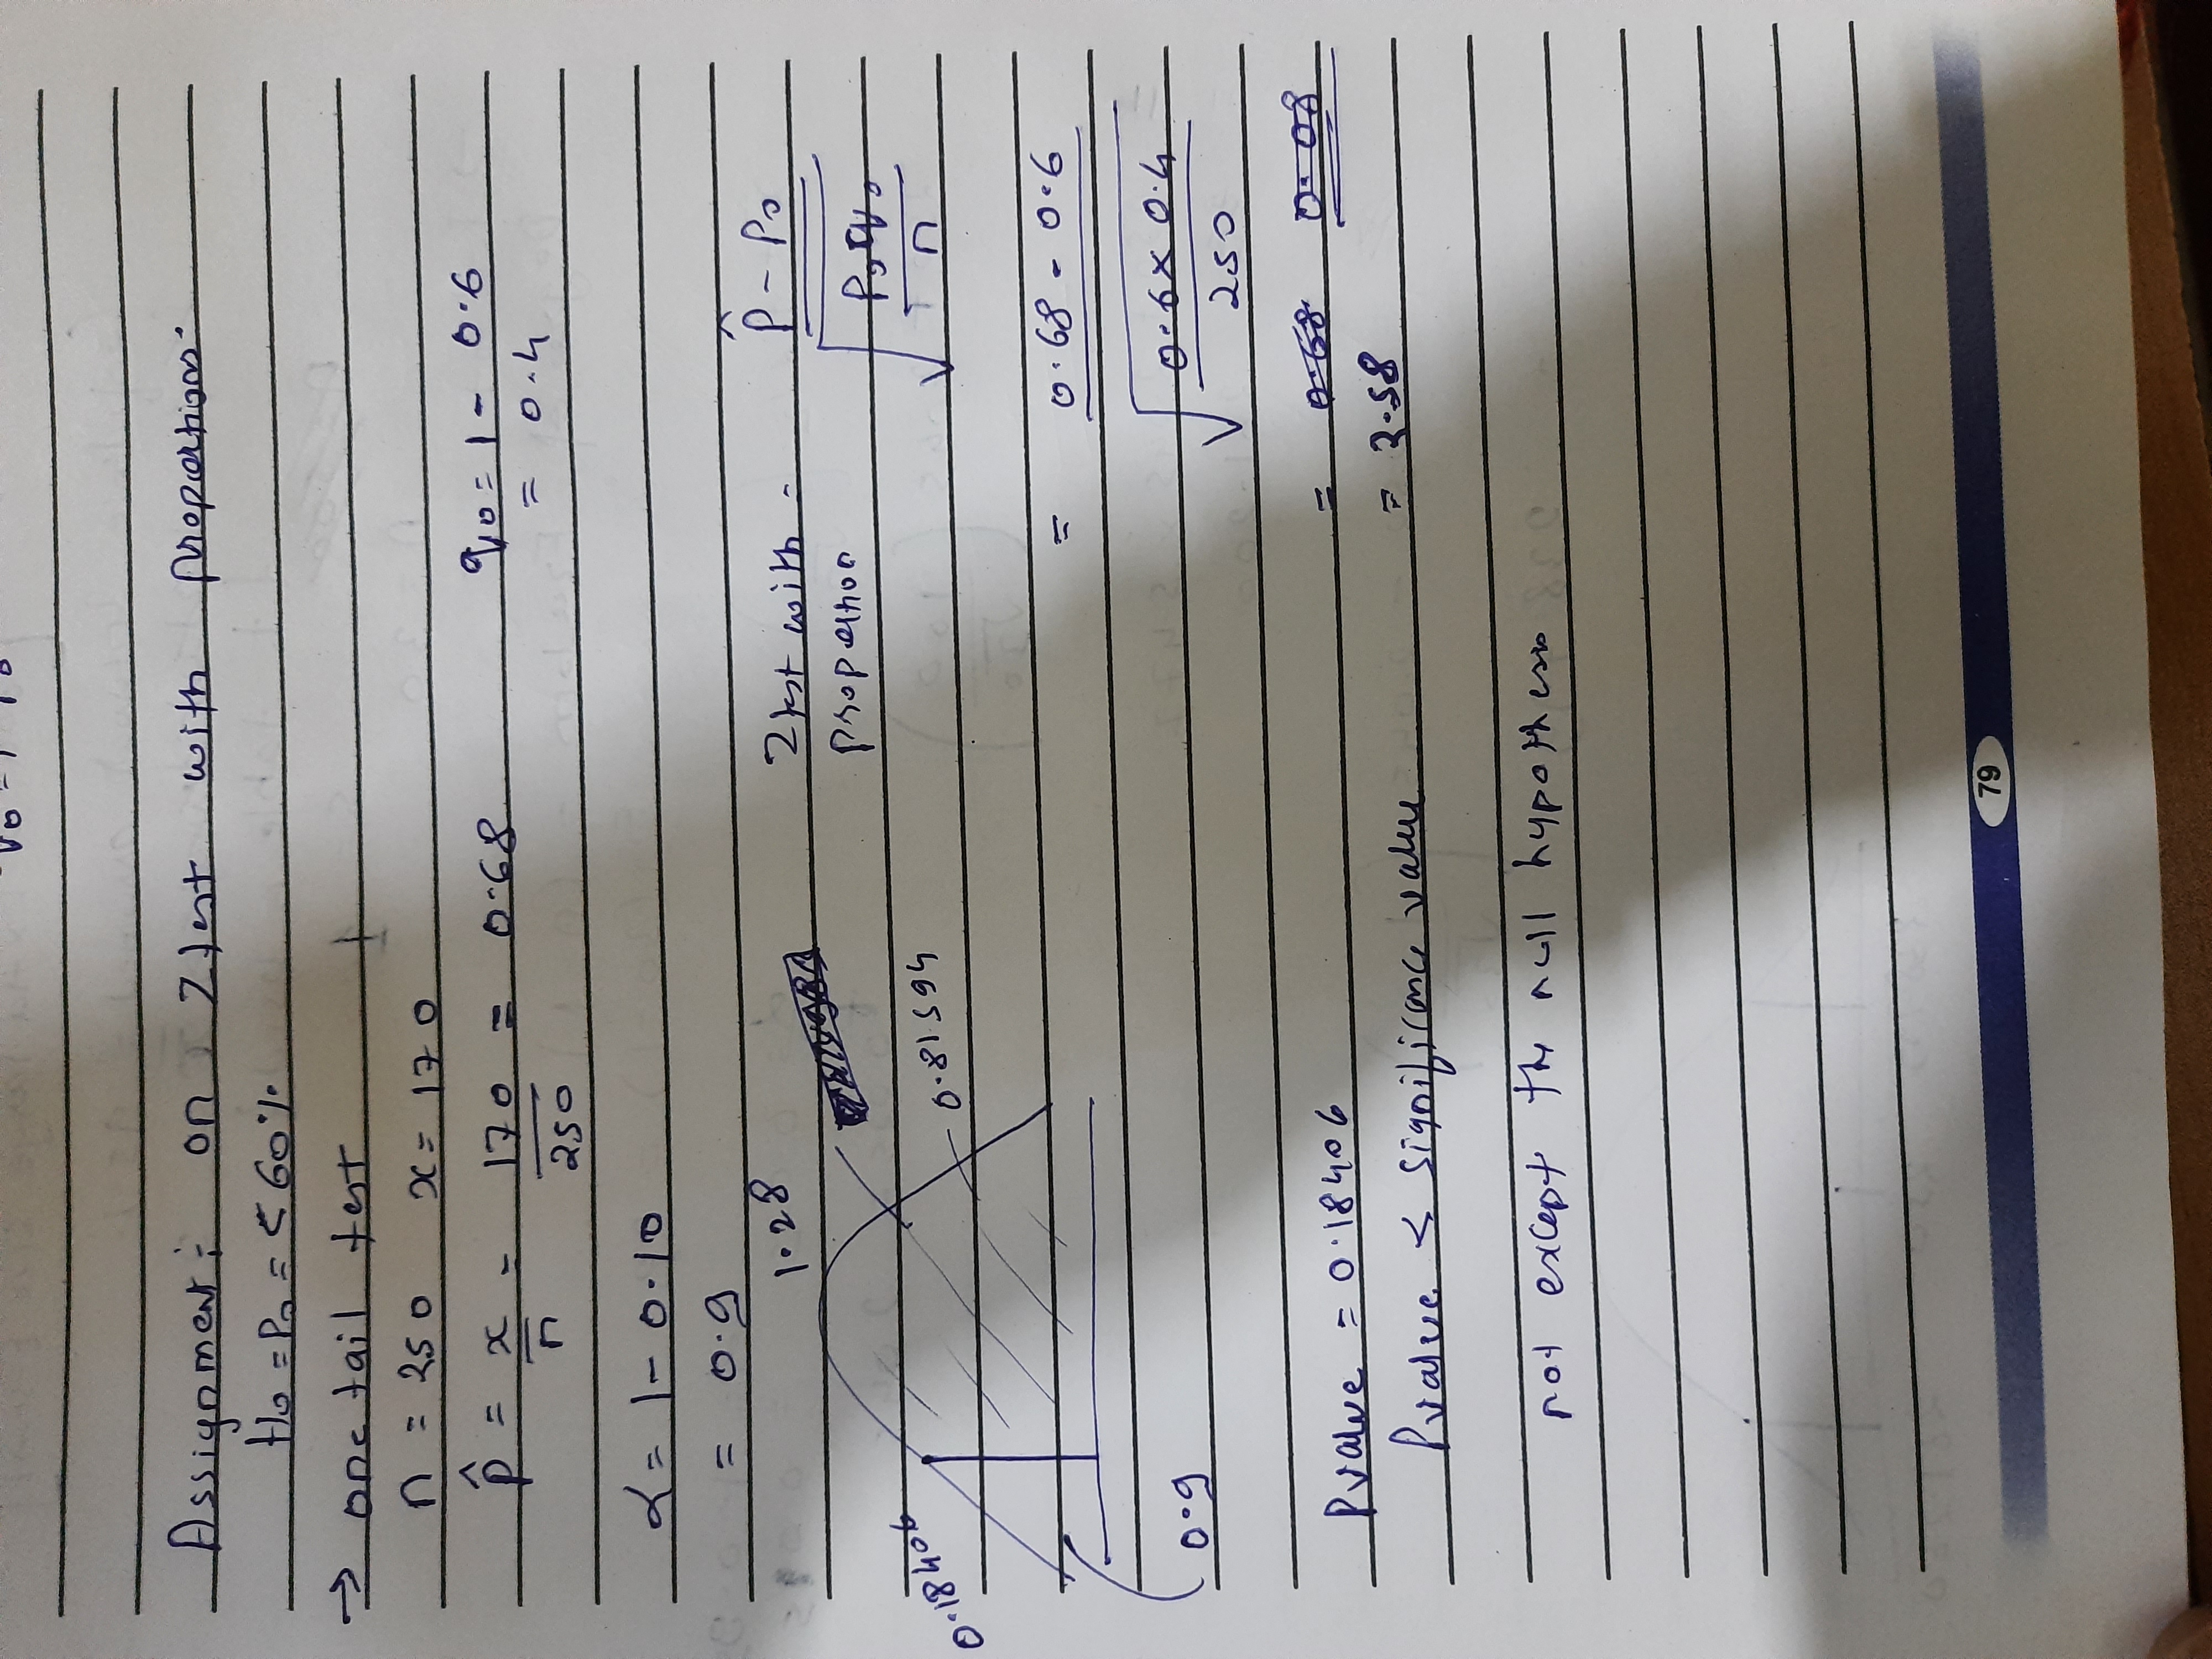 Assignment: on Z test with proportions.
H₀ = P₀ = < 60%
→ one tail test
n = 250 x = 170
p̂ = x/n = 170/250 = 0.68
q₀ = 1 - 0.6
= 0.4
α = 1 - 0.10
= 0.9
1.28
0.18406
0.81594
0.9
Z test with proportion = (p̂ - P₀) / √(P₀q₀/n)
= (0.68 - 0.6) / √(0.6 x 0.4 / 250)
= 0.68 0.08
= 2.58
P value = 0.18406
P value < significance value
not except the null hypothesis
79